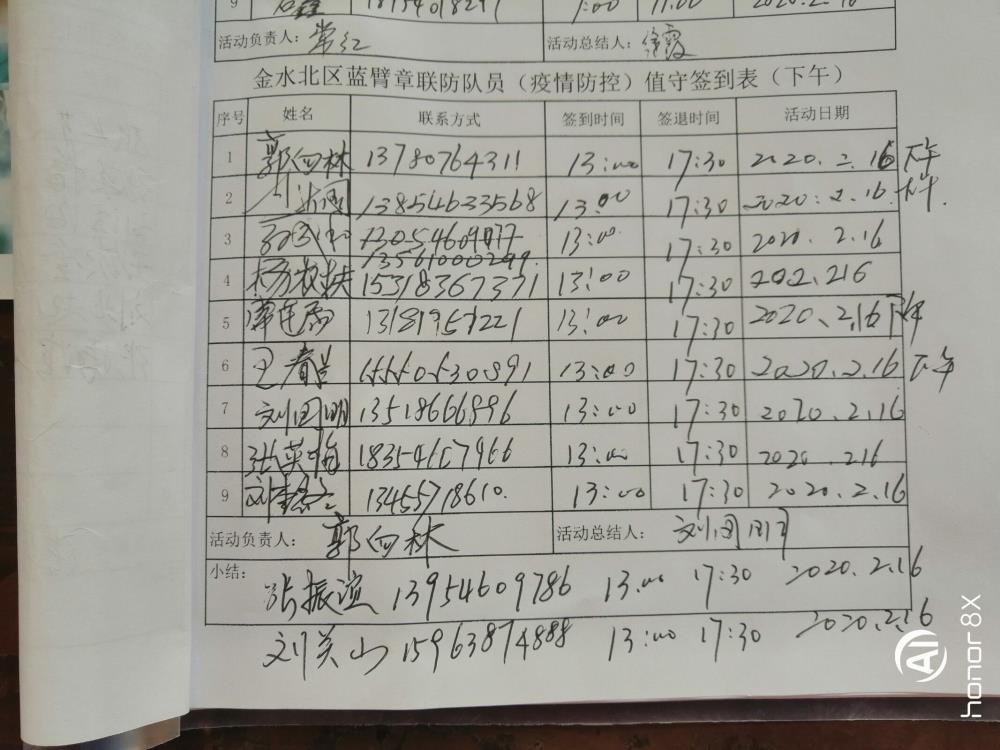 9 石鑫 1:00 11:00 2020.2.16
活动负责人： 常红 活动总结人： 徐霞
金水北区蓝臂章联防队员（疫情防控）值守签到表（下午）
序号 姓名 联系方式 签到时间 签退时间 活动日期
1 郭向林 13780764311 13:00 17:30 2020.2.16 下午
2 13854633568 13:00 17:30 2020.2.16. 下午.
3 13:00 17:30 2020.2.16
13561000299.
4 15318367371 13:00 17:30 202.216
5 13181951221 13:00 17:30 2020.2.16 下午
6 王春兰 15550530891 13:00 17:30 2020.2.16 下午
7 刘国明 13518666896 13:00 17:30 2020.2.16
8 张英梅 18354607966 13:00 17:30 2020.216
9 13455718610. 13:00 17:30 2020.2.16
活动负责人： 郭向林 活动总结人： 刘国明
小结：
张振谊 13954609786 13:00 17:30 2020.2.16
刘英山 15963874888 13:00 17:30 2020.2.16
AI
honor 8X